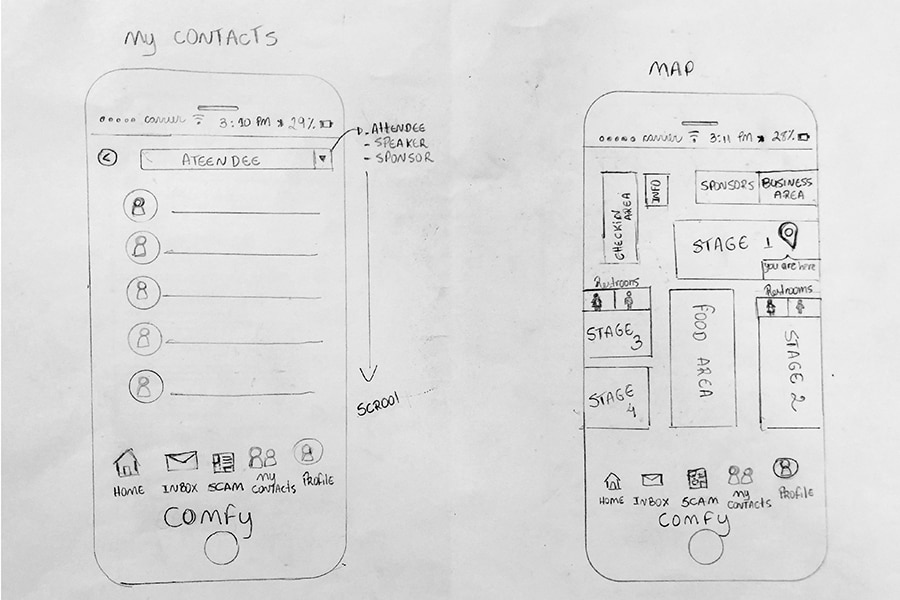 My CONTACTS
carrier 3:10 PM 29%
ATEENDEE
D. ATTENDEE
- SPEAKER
- SPONSOR
SCROOl
HOME
INBOX
SCAM
My CONTACTS
PROFILE
COMFY
MAP
carrier 3:11 PM 28%
CHECKIN AREA
INFO
SPONSORS
BUSINESS AREA
STAGE 1
you are here
Restrooms
Restrooms
STAGE 3
FOOD AREA
STAGE 2
STAGE 4
HOME
INBOX
SCAM
My CONTACTS
PROFILE
COMFY